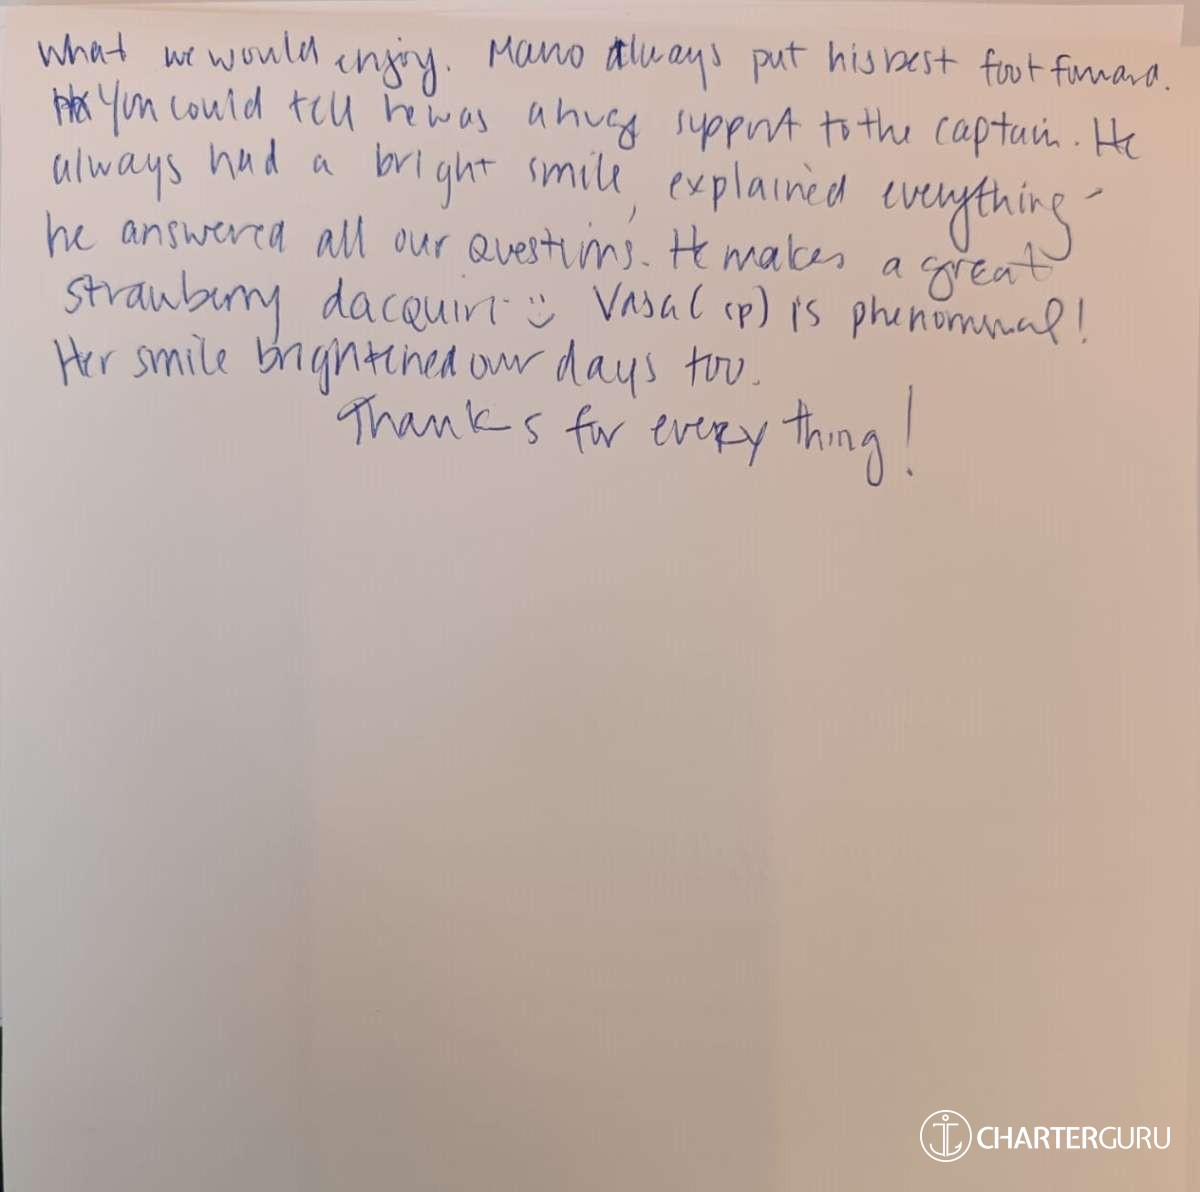 what we would enjoy. Mano always put his best foot forward.
You could tell he was a huge support to the captain. He
always had a bright smile, explained everything -
he answered all our questions. He makes a great
strawberry dacquiri :) Vasal (sp) is phenominal!
Her smile brightened our days too.
Thanks for everything!
CHARTERGURU